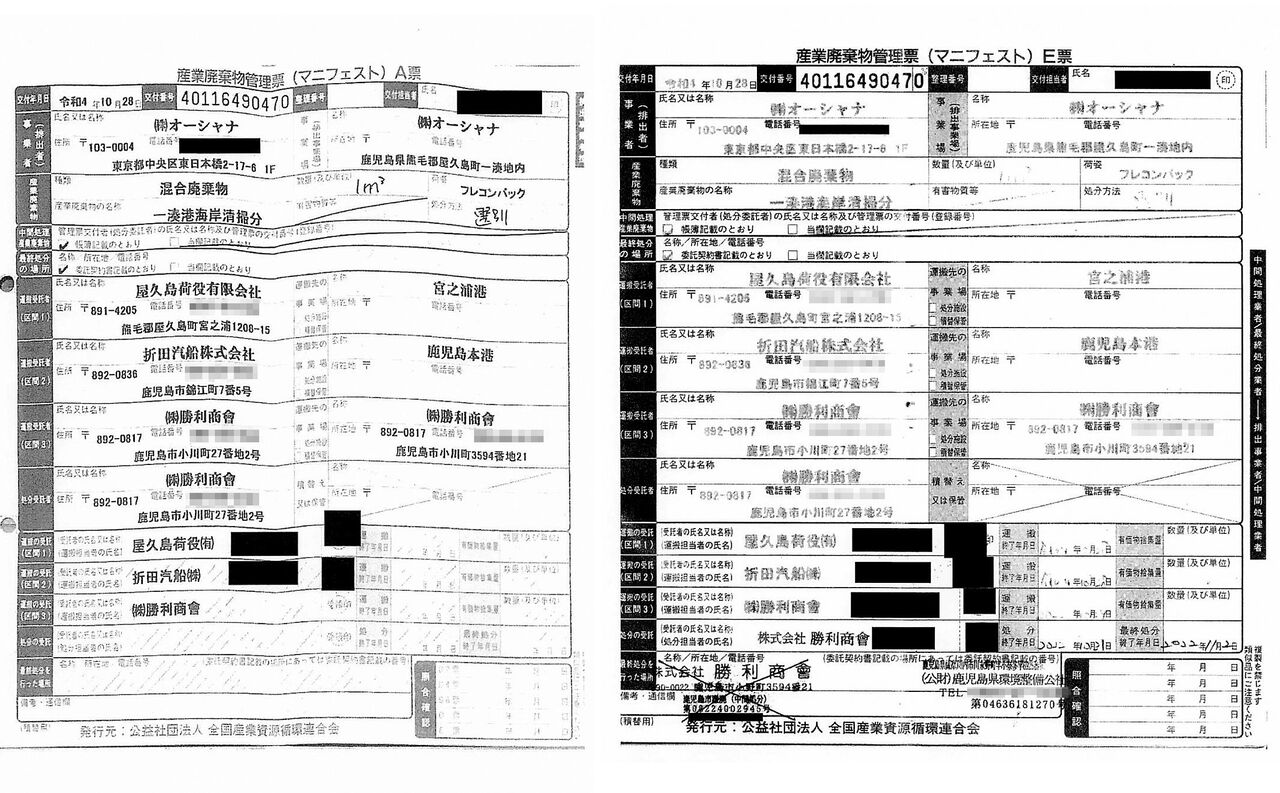 産業廃棄物管理票（マニフェスト）A票
交付年月日 令和4 年10月28日 交付番号 40116490470 整理番号 交付担当者 氏名
事業者（排出者） 氏名又は名称 ㈱オーシャナ
住所 〒103-0004 電話番号
東京都中央区東日本橋2-17-6 1F
事業場（排出事業場） 名称 ㈱オーシャナ
所在地 〒 電話番号
鹿児島県熊毛郡屋久島町一湊地内
産業廃棄物 種類 混合廃棄物 数量(及び単位) 1m³ 荷姿 フレコンバック
産業廃棄物の名称 一湊港海岸清掃分 有害物質等 処分方法 選別
中間処理産業廃棄物 管理票交付者(処分委託者)の氏名又は名称及び管理票の交付番号(登録番号)
帳簿記載のとおり 当欄記載のとおり
最終処分の場所 名称／所在地／電話番号
委託契約書記載のとおり 当欄記載のとおり
運搬受託者(区間1) 氏名又は名称 屋久島荷役有限会社 名称 宮之浦港
住所 〒891-4205 電話番号 所在地 〒 電話番号
熊毛郡屋久島町宮之浦1208-15
運搬受託者(区間2) 氏名又は名称 折田汽船株式会社 名称 鹿児島本港
住所 〒892-0836 電話番号 所在地 〒 電話番号
鹿児島市錦江町7番5号
運搬受託者(区間3) 氏名又は名称 ㈱勝利商會 運搬先の事業場 名称 ㈱勝利商會
住所 〒892-0817 電話番号 所在地 〒892-0817 電話番号
鹿児島市小川町27番地2号 鹿児島市小川町3594番地21
処分受託者 氏名又は名称 ㈱勝利商會 積替え又は保管 名称
住所 〒892-0817 電話番号 所在地 〒 電話番号
鹿児島市小川町27番地2号
運搬の受託(区間1) (受託者の氏名又は名称) (運搬担当者の氏名) 屋久島荷役㈲ 運搬終了年月日 有価物拾集量 数量(及び単位)
運搬の受託(区間2) (受託者の氏名又は名称) (運搬担当者の氏名) 折田汽船㈱ 運搬終了年月日 有価物拾集量 数量(及び単位)
運搬の受託(区間3) (受託者の氏名又は名称) (運搬担当者の氏名) ㈱勝利商會 運搬終了年月日 有価物拾集量 数量(及び単位)
処分の受託 (受託者の氏名又は名称) (処分担当者の氏名) 処分終了年月日 最終処分終了年月日
最終処分を行った場所 名称／所在地／電話番号 (委託契約書記載の場所にあっては委託契約書記載の番号)
備考・通信欄 照合確認 年 月 日
(積替用)
発行元：公益社団法人 全国産業資源循環連合会
産業廃棄物管理票（マニフェスト）E票
交付年月日 令和4 年10月28日 交付番号 40116490470 整理番号 交付担当者 氏名 印
事業者（排出者） 氏名又は名称 ㈱オーシャナ
住所 〒103-0004 電話番号
東京都中央区東日本橋2-17-6 1F
事業場（排出事業場） 名称 ㈱オーシャナ
所在地 〒 電話番号
鹿児島県熊毛郡屋久島町一湊地内
産業廃棄物 種類 混合廃棄物 数量(及び単位) 荷姿 フレコンバック
産業廃棄物の名称 一湊港海岸清掃分 有害物質等 処分方法
中間処理産業廃棄物 管理票交付者(処分委託者)の氏名又は名称及び管理票の交付番号(登録番号)
帳簿記載のとおり 当欄記載のとおり
最終処分の場所 名称／所在地／電話番号
委託契約書記載のとおり 当欄記載のとおり
運搬受託者(区間1) 氏名又は名称 屋久島荷役有限会社 運搬先の事業場 名称 宮之浦港
住所 〒891-4205 電話番号 処分施設 積替保管 所在地 〒 電話番号
熊毛郡屋久島町宮之浦1208-15
運搬受託者(区間2) 氏名又は名称 折田汽船株式会社 運搬先の事業場 名称 鹿児島本港
住所 〒892-0836 電話番号 処分施設 積替保管 所在地 〒 電話番号
鹿児島市錦江町7番5号
運搬受託者(区間3) 氏名又は名称 ㈱勝利商會 運搬先の事業場 名称 ㈱勝利商會
住所 〒892-0817 電話番号 処分施設 積替保管 所在地 〒892-0817 電話番号
鹿児島市小川町27番地2号 鹿児島市小川町3594番地21
処分受託者 氏名又は名称 ㈱勝利商會 積替え又は保管 名称
住所 〒892-0817 電話番号 所在地 〒 電話番号
鹿児島市小川町27番地2号
運搬の受託(区間1) (受託者の氏名又は名称) (運搬担当者の氏名) 屋久島荷役㈲ 運搬終了年月日 有価物拾集量 数量(及び単位)
運搬の受託(区間2) (受託者の氏名又は名称) (運搬担当者の氏名) 折田汽船㈱ 運搬終了年月日 有価物拾集量 数量(及び単位)
運搬の受託(区間3) (受託者の氏名又は名称) (運搬担当者の氏名) ㈱勝利商會 運搬終了年月日 有価物拾集量 数量(及び単位)
処分の受託 (受託者の氏名又は名称) (処分担当者の氏名) 株式会社 勝利商會 処分終了年月日 最終処分終了年月日
最終処分を行った場所 名称／所在地／電話番号 (委託契約書記載の場所にあっては委託契約書記載の番号)
株式会社 勝利商會 (公財)鹿児島県環境整備公社
TEL
第04636181270号
備考・通信欄 照合確認 年 月 日
(積替用)
発行元：公益社団法人 全国産業資源循環連合会
中間処理業者／最終処分業者→排出事業者／中間処理業者
複製を禁じます
類似品にご注意ください